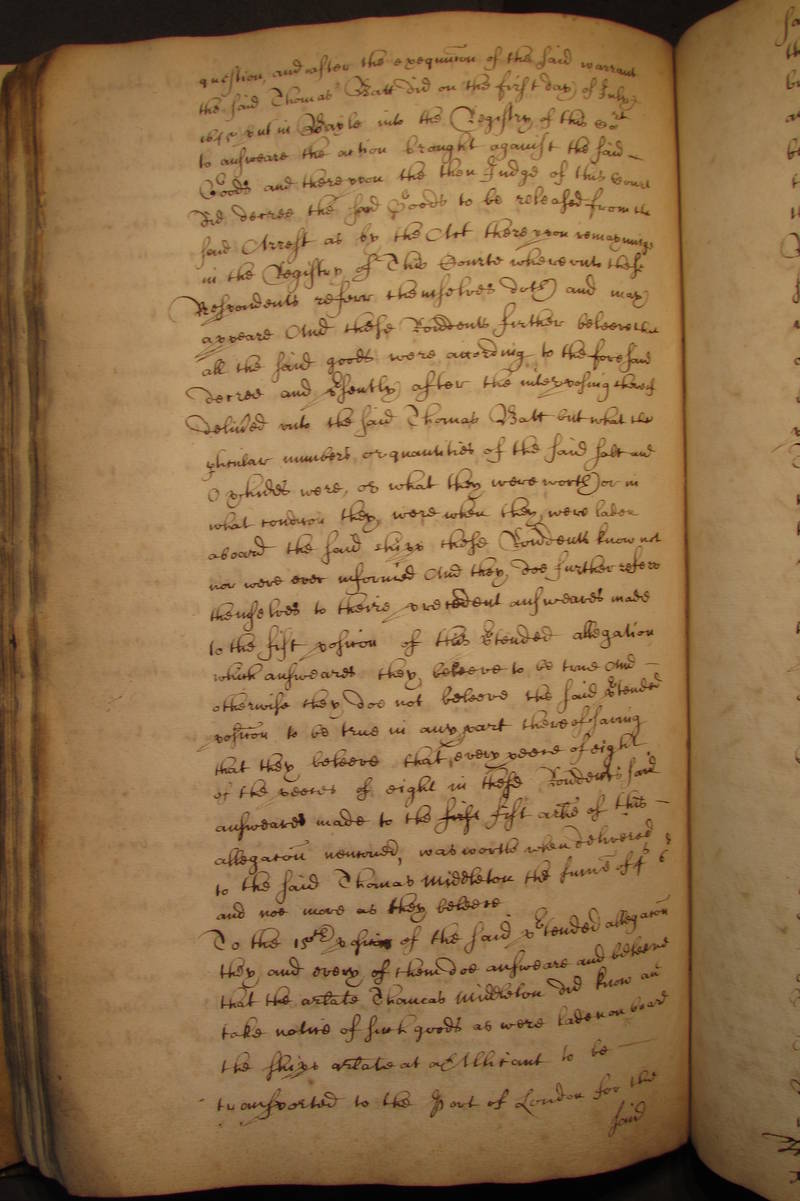 question, and after the exequution of the said warrant
the said Thomas Batt did on the first day of July
put in Bayle into the Registry of this Cort
to answeare the action brought against the said
Goods and thereupon the then Judge of this Court
did decree the said Goods to be released from the
said Arrest as by the Act thereupon remayninge
in the Registry of this Courte whereunto these
Respondents referr themselves doth and may
appeare And these Rondents further beleeve that
all the said goods were according to the foresaid
decree and psently after the interposing thereof
delived unto the said Thomas Batt but what the
pticular numbers or quantities of the said salt and
Oxhides were, or what they were worth or in
what condicon they were when they were laden
aboard the said shipp these Rondents know not
nor were ever informed And they doe further referr
themselves to theire precedent answeares made
to the first position of this ptended allegation
which answeares they beleeve to be true And
otherwise they doe not beleeve the said ptended
position to be true in any part thereof saving
that they beleeve that every peece of eight
of the peeces of eight in these Rondents said
answeares made to the first first artle of this
allegacon menconed, was worth when delivered
to the said Thomas Middleton the summe of 4s 6
and noe more as they beleeve
To the 15th position of the said ptended allegacon
they and every of them doe answeare and beleeve
that the artlate Thomas Middleton did know and
take notice of such goods as were laden on board
the shipp artlate at Allicant to be
transported to the Port of London for the
said